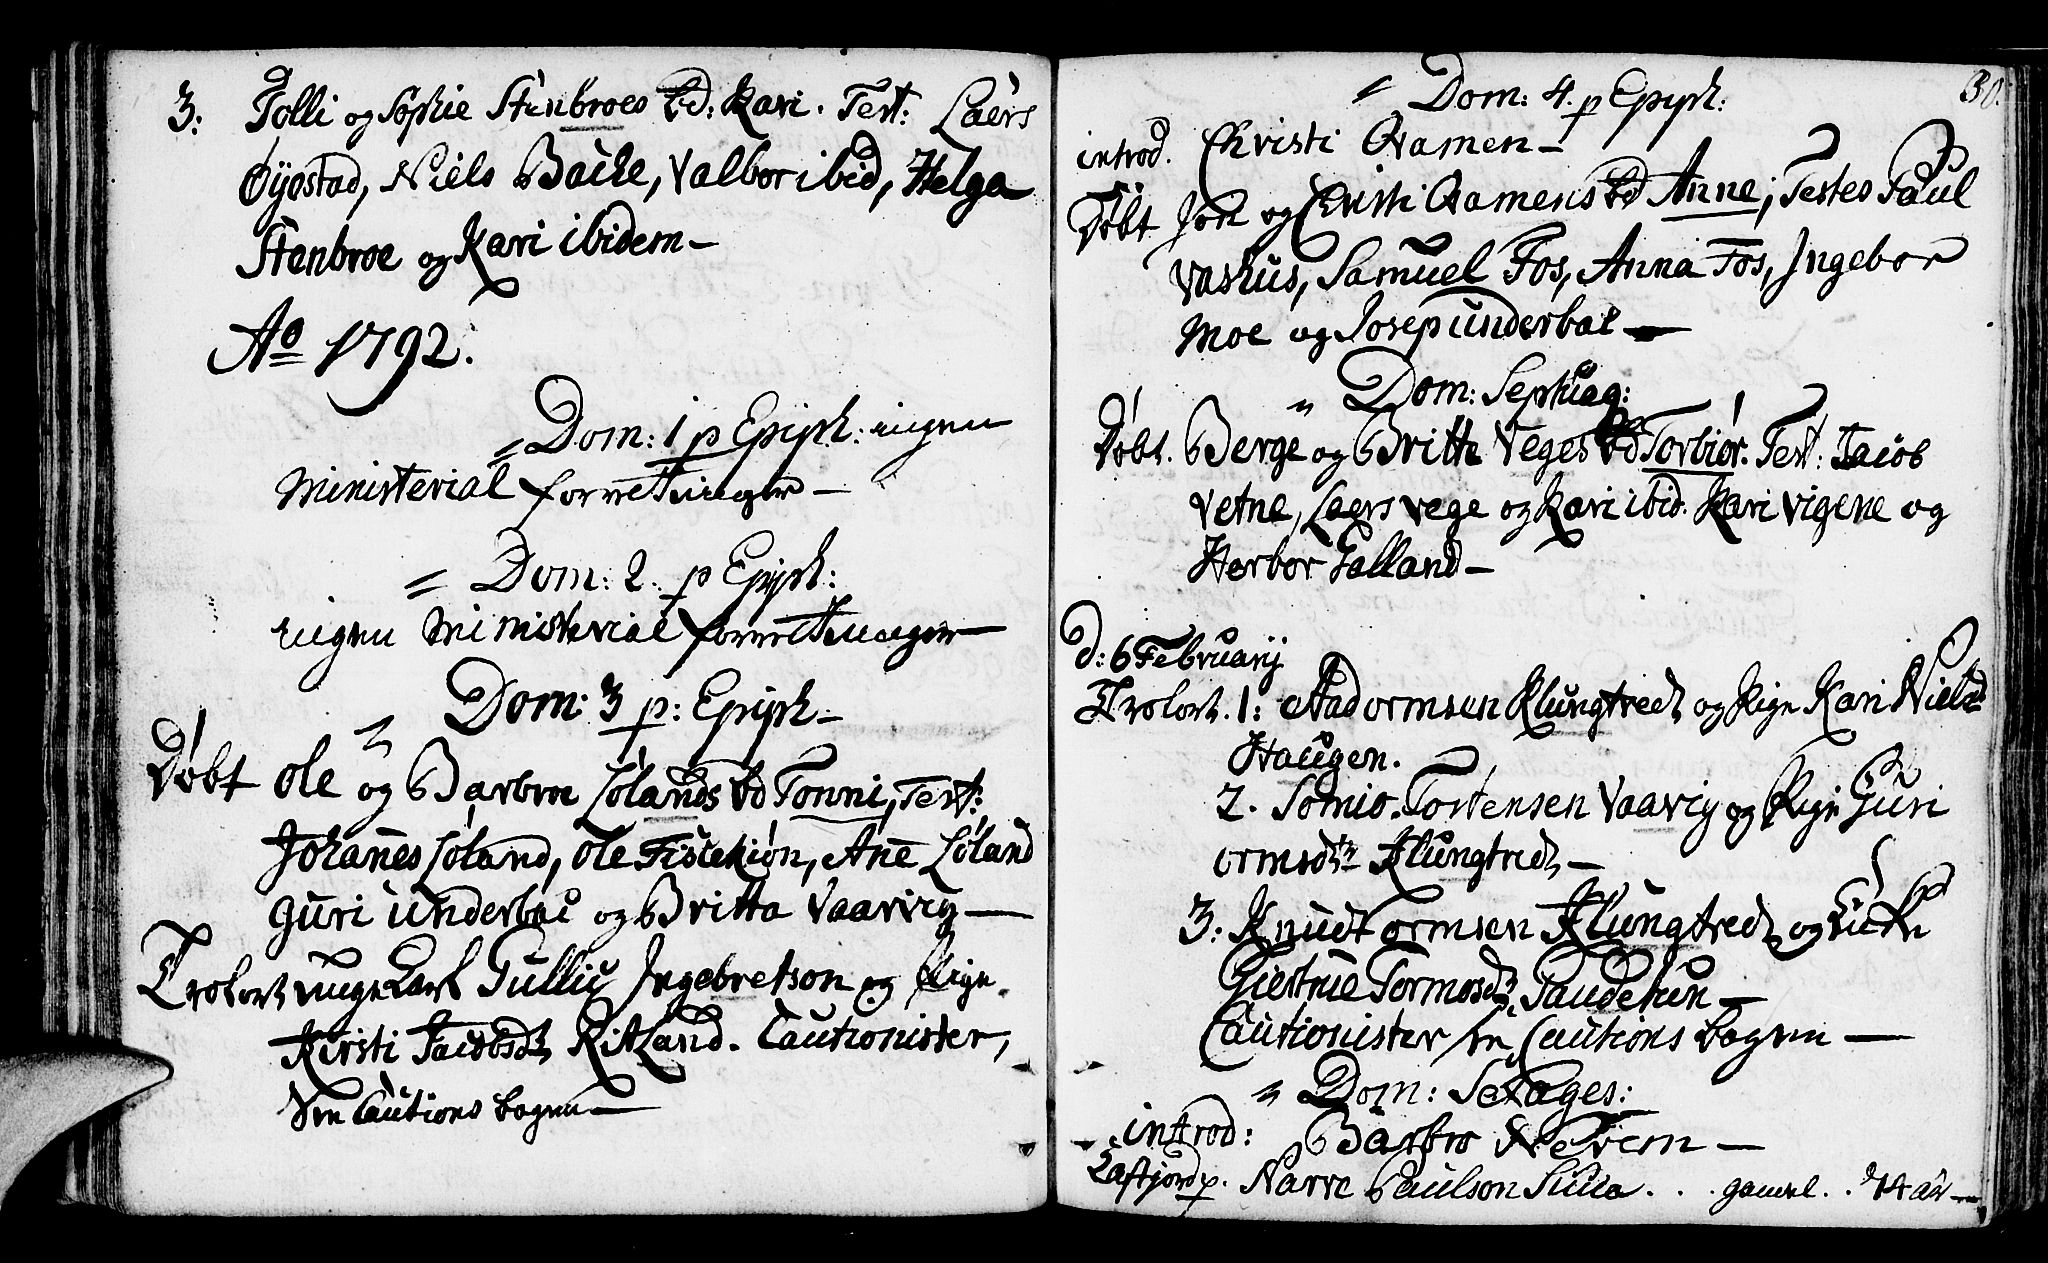 3: Tolli og Sophie Stenbroes bd: Kari. Test: Laers
Øygstad, Niels Backe, Valbor ibid, Helga
Stenbroe og Kari ibidem –
Ao 1792.
Dom: 1 p Epiph: ingen
Ministerial forretninger –
Dom: 2. p Epiph:
ingen Ministerial forretninger –
Dom: 3 p: Epiph –
Døbt Ole og Barbroe Lølands bd Tonni, Test:
Johañes Løland, Ole Fistekiøn, Añe Løland
Guri underbac og Britta Vaavig –
Trolovt unge Karl Tulliv Ingebretson og Pige
Kirsti Jacobsdt Ritland. Cautionister,
Vm Cautions bogen –
30.
Dom: 4. p Epiph:
introd. Christi Qvamen –
Døbt Jon og Christi Qvamens bd Anne; Testes Paul
Vashus, Samuel Fos, Anna Fos, Ingebor
Moe og Josep underbac –
Dom: Septuag:
Døbt. Berge og Britte Veges bd Torbiør. Test: Jacob
Vetne, Laers Vege og Kari ibid. Kari Vigene og
Herbor Galland –
D: 6 Februarij
Trolovt. 1: Aad ormsen Klungtvedt og Pige Kari Nielsd
Haugen.
2. Somio. Tortensen Vaavig og Pige Guri
ormsdtr Klungtvedt –
3: Knudt ormsen Klungtvedt og Enke
Giertrue Tormosdt Saudekun –
Cautionister Vm Cautions bogen –
Dom: Sexages:
introd: Barbro Netrem –
Kastjord p. Narve Paulson . . gamel . . 74 aar –